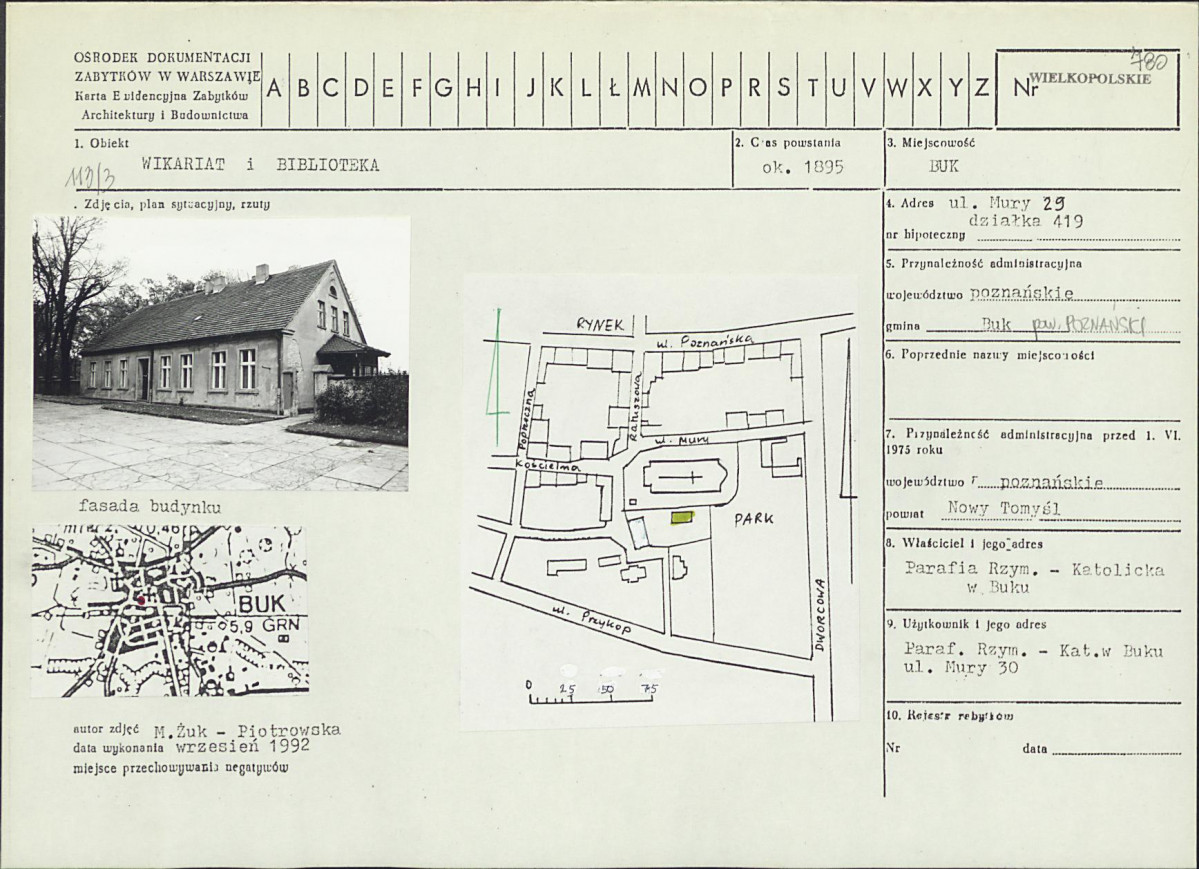 OŚRODEK DOKUMENTACJI
ZABYTKÓW W WARSZAWIE
Karta Ewidencyjna Zabytków
Architektury i Budownictwa
A B C D E F G H I J K L Ł M N O P R S T U V W X Y Z
Nr WIELKOPOLSKIE
780
1. Obiekt
WIKARIAT i BIBLIOTEKA
113/3
2. Czas powstania
ok. 1895
3. Miejscowość
BUK
. Zdjęcia, plan sytuacyjny, rzuty
4. Adres ul. Mury 29
działka 419
nr hipoteczny
5. Przynależność administracyjna
województwo poznańskie
gmina Buk pow. POZNAŃSKI
6. Poprzednie nazwy miejscowości
7. Przynależność administracyjna przed 1. VI.
1975 roku
województwo poznańskie
powiat Nowy Tomyśl
8. Właściciel i jego adres
Parafia Rzym. - Katolicka
w Buku
9. Użytkownik i jego adres
Paraf. Rzym. - Kat.w Buku
ul. Mury 30
10. Rejestr zabytków
Nr data
fasada budynku
BUK
5,9 GRN
autor zdjęć M.Żuk - Piotrowska
data wykonania wrzesień 1992
miejsce przechowywania negatywów
RYNEK
ul. Poznańska
Poprzeczna
Ratuszowa
ul. Mury
Kościelna
PARK
DWORCOWA
ul. Przykop
0 25 50 75